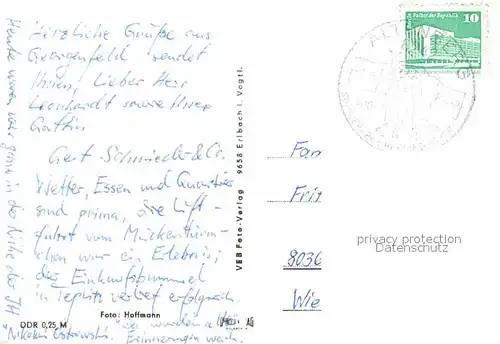 Herzliche Grüße aus
Georgenfeld sendet
Ihnen, lieber Herr
Leonhardt sowie Ihrer
Gattin
Gert Schmieder & Co.
Wetter, Essen und Quartier
sind prima, die Luft-
fahrt vom Mückentürm-
chen war ein Erlebnis;
der Einkaufsbummel
in Teplitz verlief erfolgreich.
Heute waren wir ganz in der Nähe der JH
"Nikolai Ostrowski." Da wurden alte
Erinnerungen wach.
Foto: Hoffmann
DDR 0,25 M
VEB Foto-Verlag 9658 Erlbach i. Vogtl.
Palast der Republik 10
ALTENBERG
Fam
Frit
8036
Wie
privacy protection
Datenschutz